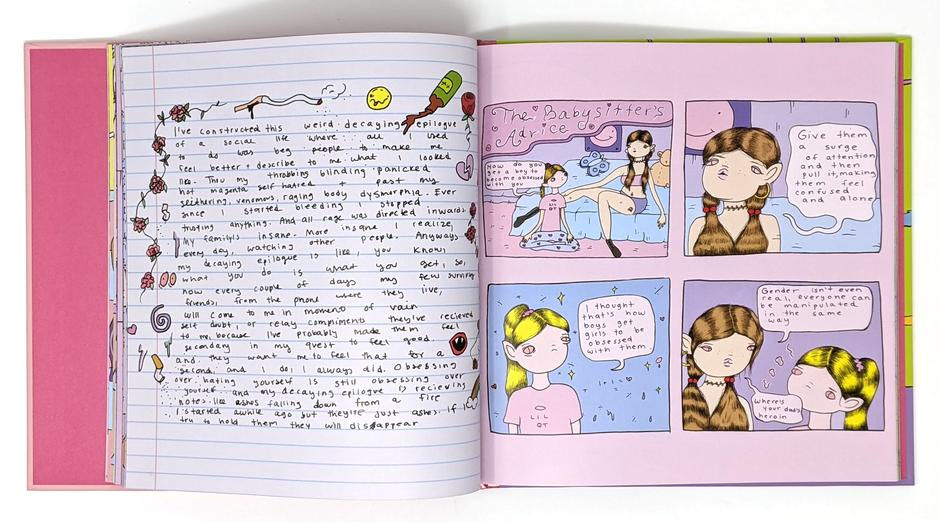 I've constructed this weird decaying epilogue
of a social life where all I used
to do was beg people to make me
feel better + describe to me what I looked
like. Thou my throbbing blinding panicked
hot magenta self hatred + past my
slithering, venomous, raging body dysmorphia. Ever
since I started bleeding I stopped
trusting anything. And all rage was directed inwards
My family's insane. More insane I realize,
every day, watching other people. Anyways
my decaying epilogue is like, you know,
what you do is what you get, so,
now every couple of days my few surviving
friends, from the phone where they live,
will come to me in moments of vain
self doubt, or relay compliments they've recieved
to me, because I've probably made them feel
secondary in my quest to feel good.
and, they want me to feel that for a
second, and I do, I always did. Obsessing
over hating yourself is still obsessing over
yourself and my decaying epilogue is recieving
notes like ashes falling down from a fire
I started awhile ago but they're just ashes. if I
try to hold them they will disappear
The Babysitter's
Advice
How do you
get a boy to
become obsessed
with you
LIL
QT
Give them
a surge
of attention
and then
pull it, making
them feel
confused
and alone
I thought
that's how
boys get
girls to be
obsessed
with them
LIL
QT
Gender isn't even
real, everyone can
be manipulated
in the same
way
Where's
your dad's
heroin